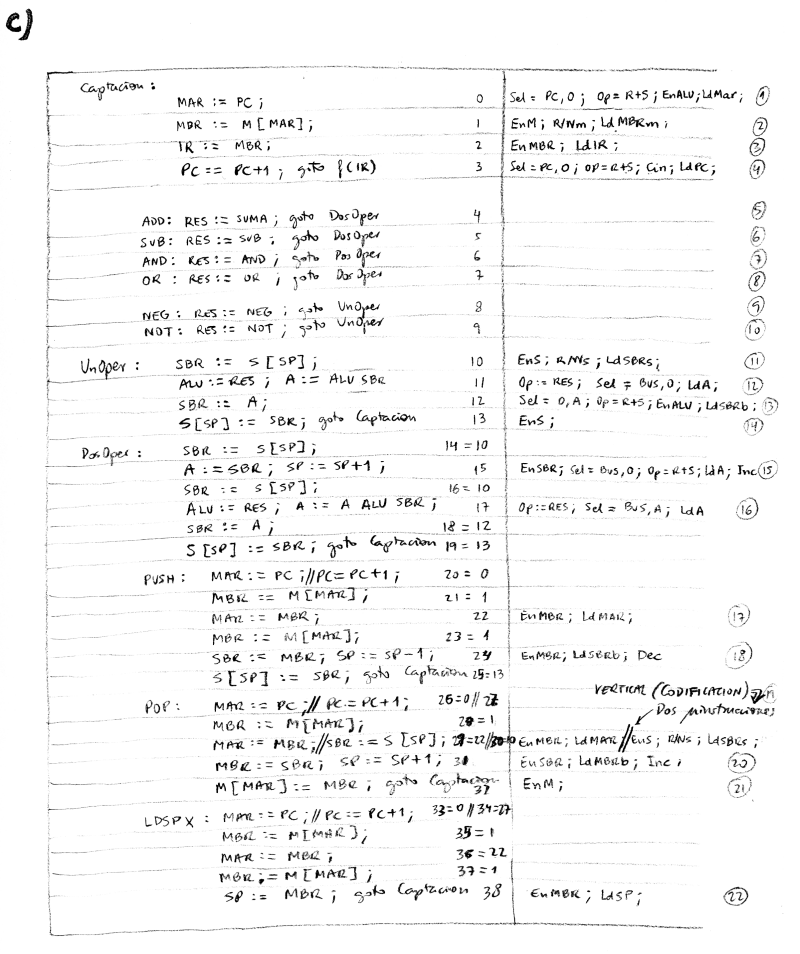 c)
Captacion :
MAR := PC ; 0 Sel = PC,0 ; Op = R+S ; EnALU ; LdMar ; 1
MBR := M[MAR] ; 1 EnM ; R/Wm ; LdMBRm ; 2
IR := MBR ; 2 EnMBR ; LdIR ; 3
PC == PC+1 ; goto f(IR) 3 Sel = PC,0 ; OP = R+S ; Cin ; LdPC ; 4
ADD : RES := SUMA ; goto DosOper 4 5
SUB : RES := SUB ; goto DosOper 5 6
AND : RES := AND ; goto DosOper 6 7
OR : RES := OR ; goto DosOper 7 8
NEG : RES := NEG ; goto UnOper 8 9
NOT : RES := NOT ; goto UnOper 9 10
UnOper : SBR := S[SP] ; 10 EnS ; R/Ws ; LdSBRs ; 11
ALU := RES ; A := ALU SBR 11 Op := RES ; Sel = BUS,0 ; LdA ; 12
SBR := A ; 12 Sel = 0,A ; Op = R+S ; EnALU ; LdSBRb ; 13
S[SP] := SBR ; goto Captacion 13 EnS ; 14
DosOper : SBR := S[SP] ; 14 = 10
A := SBR ; SP := SP+1 ; 15 EnSBR ; Sel = BUS,0 ; Op = R+S ; LdA ; Inc 15
SBR := S[SP] ; 16 = 10
ALU := RES ; A := A ALU SBR ; 17 Op := RES ; Sel = BUS,A ; LdA 16
SBR := A ; 18 = 12
S[SP] := SBR ; goto Captacion 19 = 13
PUSH : MAR := PC ; // PC = PC+1 ; 20 = 0
MBR == M[MAR] ; 21 = 1
MAR := MBR ; 22 EnMBR ; LdMAR ; 17
MBR := M[MAR] ; 23 = 1
SBR := MBR ; SP := SP-1 ; 24 EnMBR ; LdSBRb ; Dec 18
S[SP] := SBR ; goto Captacion 25 = 13
VERTICAL (CODIFICACION)
POP : MAR := PC ; // PC = PC+1 ; 26 = 0 // 27 Dos µinstrucciones
MBR := M[MAR] ; = 1
MAR := MBR ; // SBR := S[SP] ; = 22 // EnMBR ; LdMAR // EnS ; R/Ws ; LdSBRs ;
MBR := SBR ; SP := SP+1 ; 31 EnSBR ; LdMBRb ; Inc ; 20
M[MAR] := MBR ; goto Captacion EnM ; 21
LDSPX : MAR := PC ; // PC := PC+1 ; 33 = 0 // 34 = 27
MBR := M[MAR] ; 35 = 1
MAR := MBR ; 36 = 22
MBR := M[MAR] ; 37 = 1
SP := MBR ; goto Captacion 38 EnMBR ; LdSP ; 22